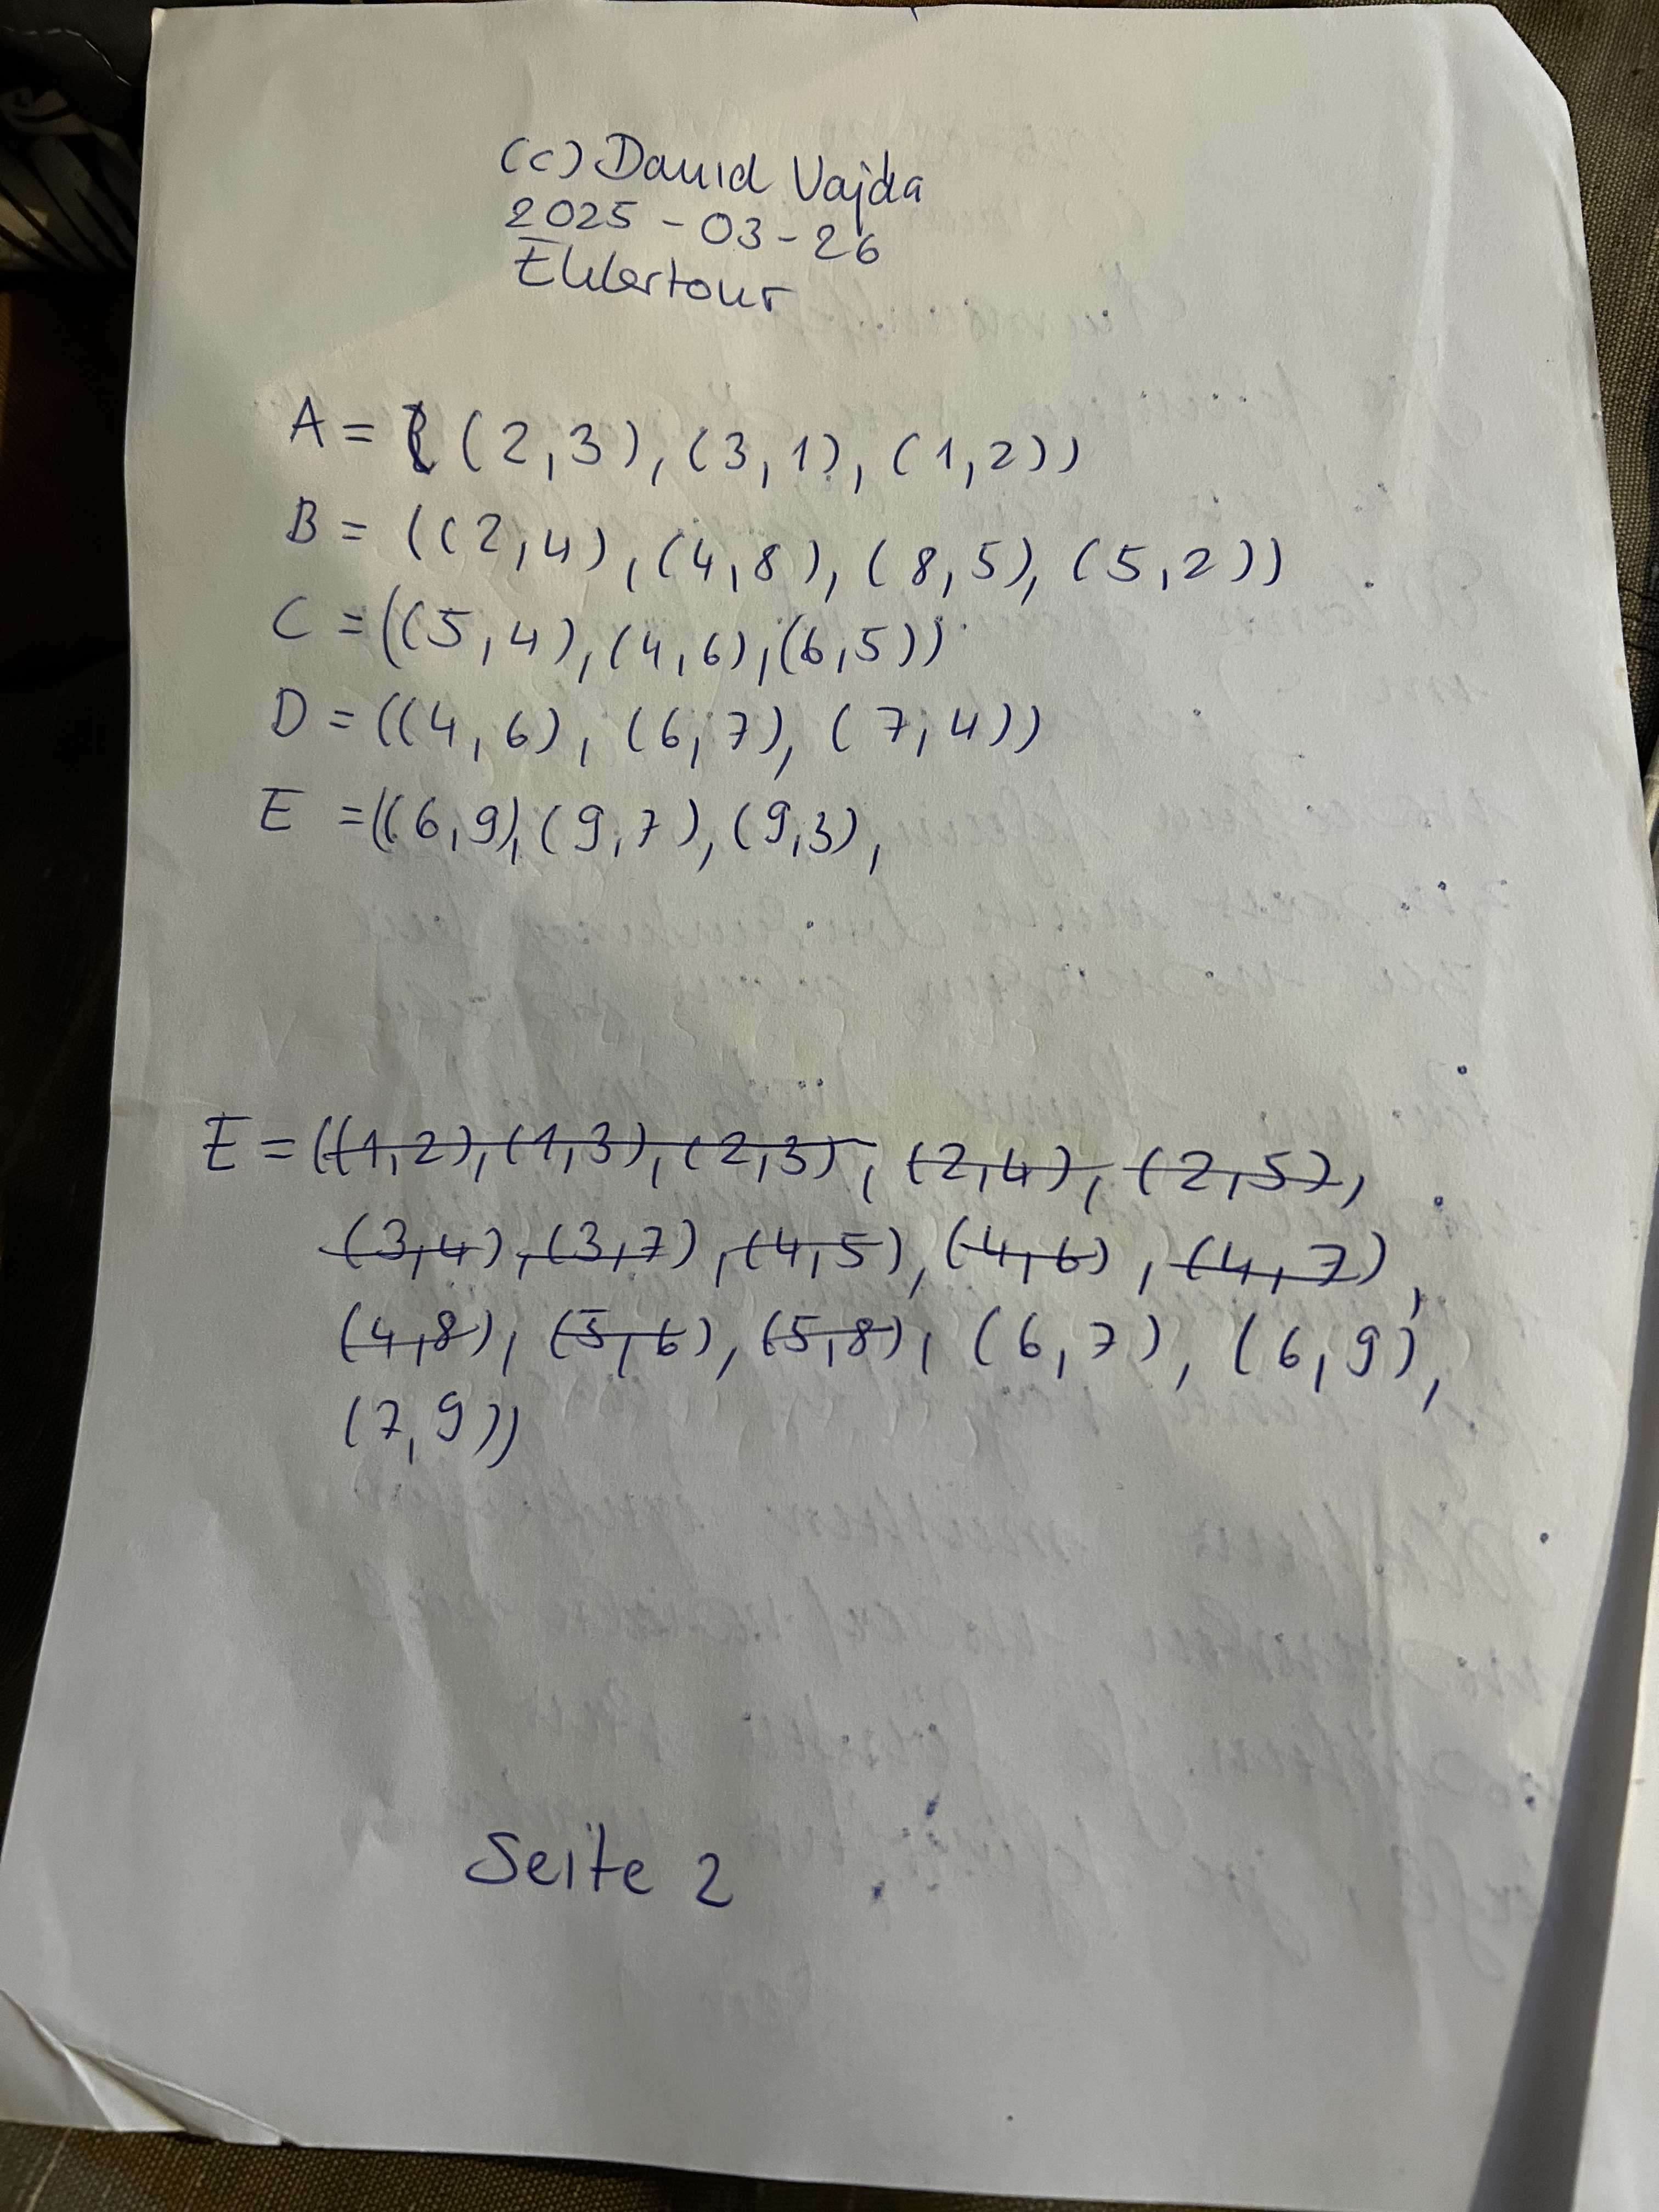 (c) David Vajda
2025-03-26
Eulertour
A = ((2,3),(3,1),(1,2))
B = ((2,4),(4,8),(8,5),(5,2))
C = ((5,4),(4,6),(6,5))
D = ((4,6),(6,7),(7,4))
E = ((6,9),(9,7),(9,3),
E = ((1,2),(1,3),(2,3),(2,4),(2,5),
(3,4),(3,7),(4,5),(4,6),(4,7),
(4,8),(5,6),(5,8),(6,7),(6,9),
(7,9))
Seite 2